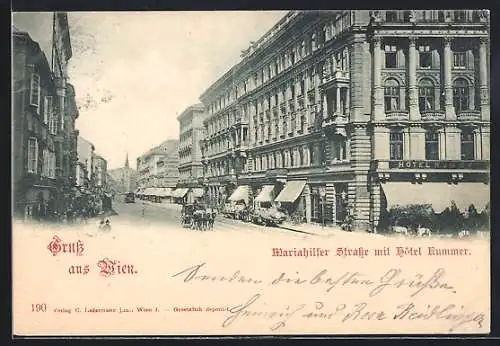 HOTEL KUMMER
Gruß
aus Wien.
Mariahilfer Straße mit Hôtel Kummer.
Senden die besten Grüße
190 Verlag C. Ledermann jun., Wien I. — Gesetzlich deponirt.
Heinrich und Rosa